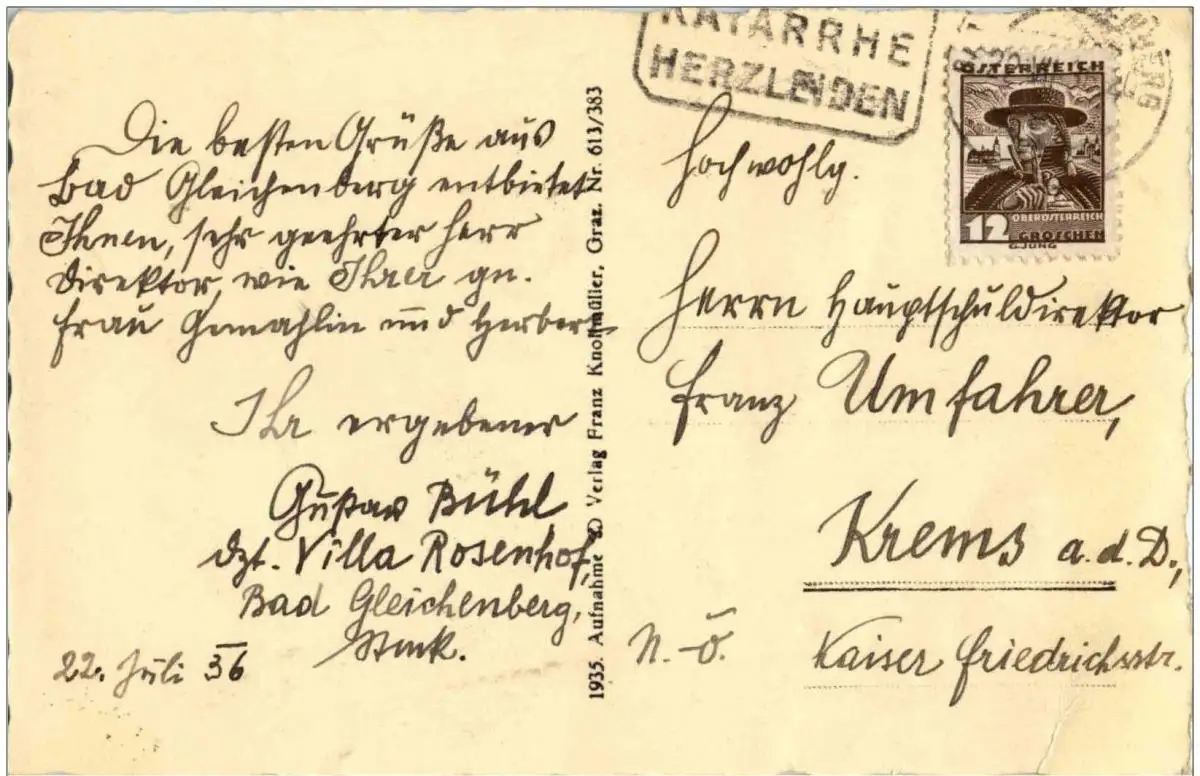 Die besten Grüße aus
Bad Gleichenberg entbietet
Ihnen, sehr geehrter Herr
Direktor, wie Ihrer gn.
Frau Gemahlin und Herbert
Ihr ergebener
Gustav Bühl
dzt. Villa Rosenhof,
Bad Gleichenberg,
Stmk.
22. Juli 36
1935. Aufnahme & Verlag Franz Knollmüller, Graz. Nr. 613/383
KATARRHE
HERZLEIDEN
ÖSTERREICH
12
OBERÖSTERREICH
GROSCHEN
G.JUNG
Hochwohlg.
Herrn Hauptschuldirektor
Franz Umfahrer,
Krems a.d.D.,
N.-Ö.
Kaiser Friedrichsstr.